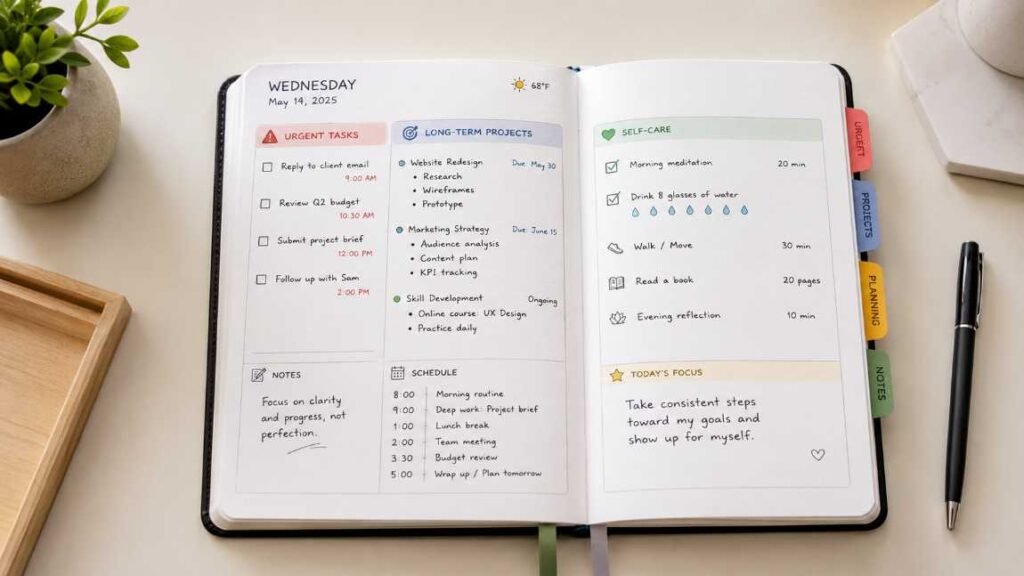 WEDNESDAY
May 14, 2025
68°F
URGENT TASKS
Reply to client email
9:00 AM
Review Q2 budget
10:30 AM
Submit project brief
12:00 PM
Follow up with Sam
2:00 PM
LONG-TERM PROJECTS
Website Redesign Due: May 30
• Research
• Wireframes
• Prototype
Marketing Strategy Due: June 15
• Audience analysis
• Content plan
• KPI tracking
Skill Development Ongoing
• Online course: UX Design
• Practice daily
NOTES
Focus on clarity
and progress, not
perfection.
SCHEDULE
8:00 Morning routine
9:00 Deep work: Project brief
1:00 Lunch break
2:00 Team meeting
3 30 Budget review
5:00 Wrap up / Plan tomorrow
SELF-CARE
Morning meditation 20 min
Drink 8 glasses of water
Walk / Move 30 min
Read a book 20 pages
Evening reflection 10 min
TODAY'S FOCUS
Take consistent steps
toward my goals and
show up for myself.
URGENT
PROJECTS
PLANNING
NOTES